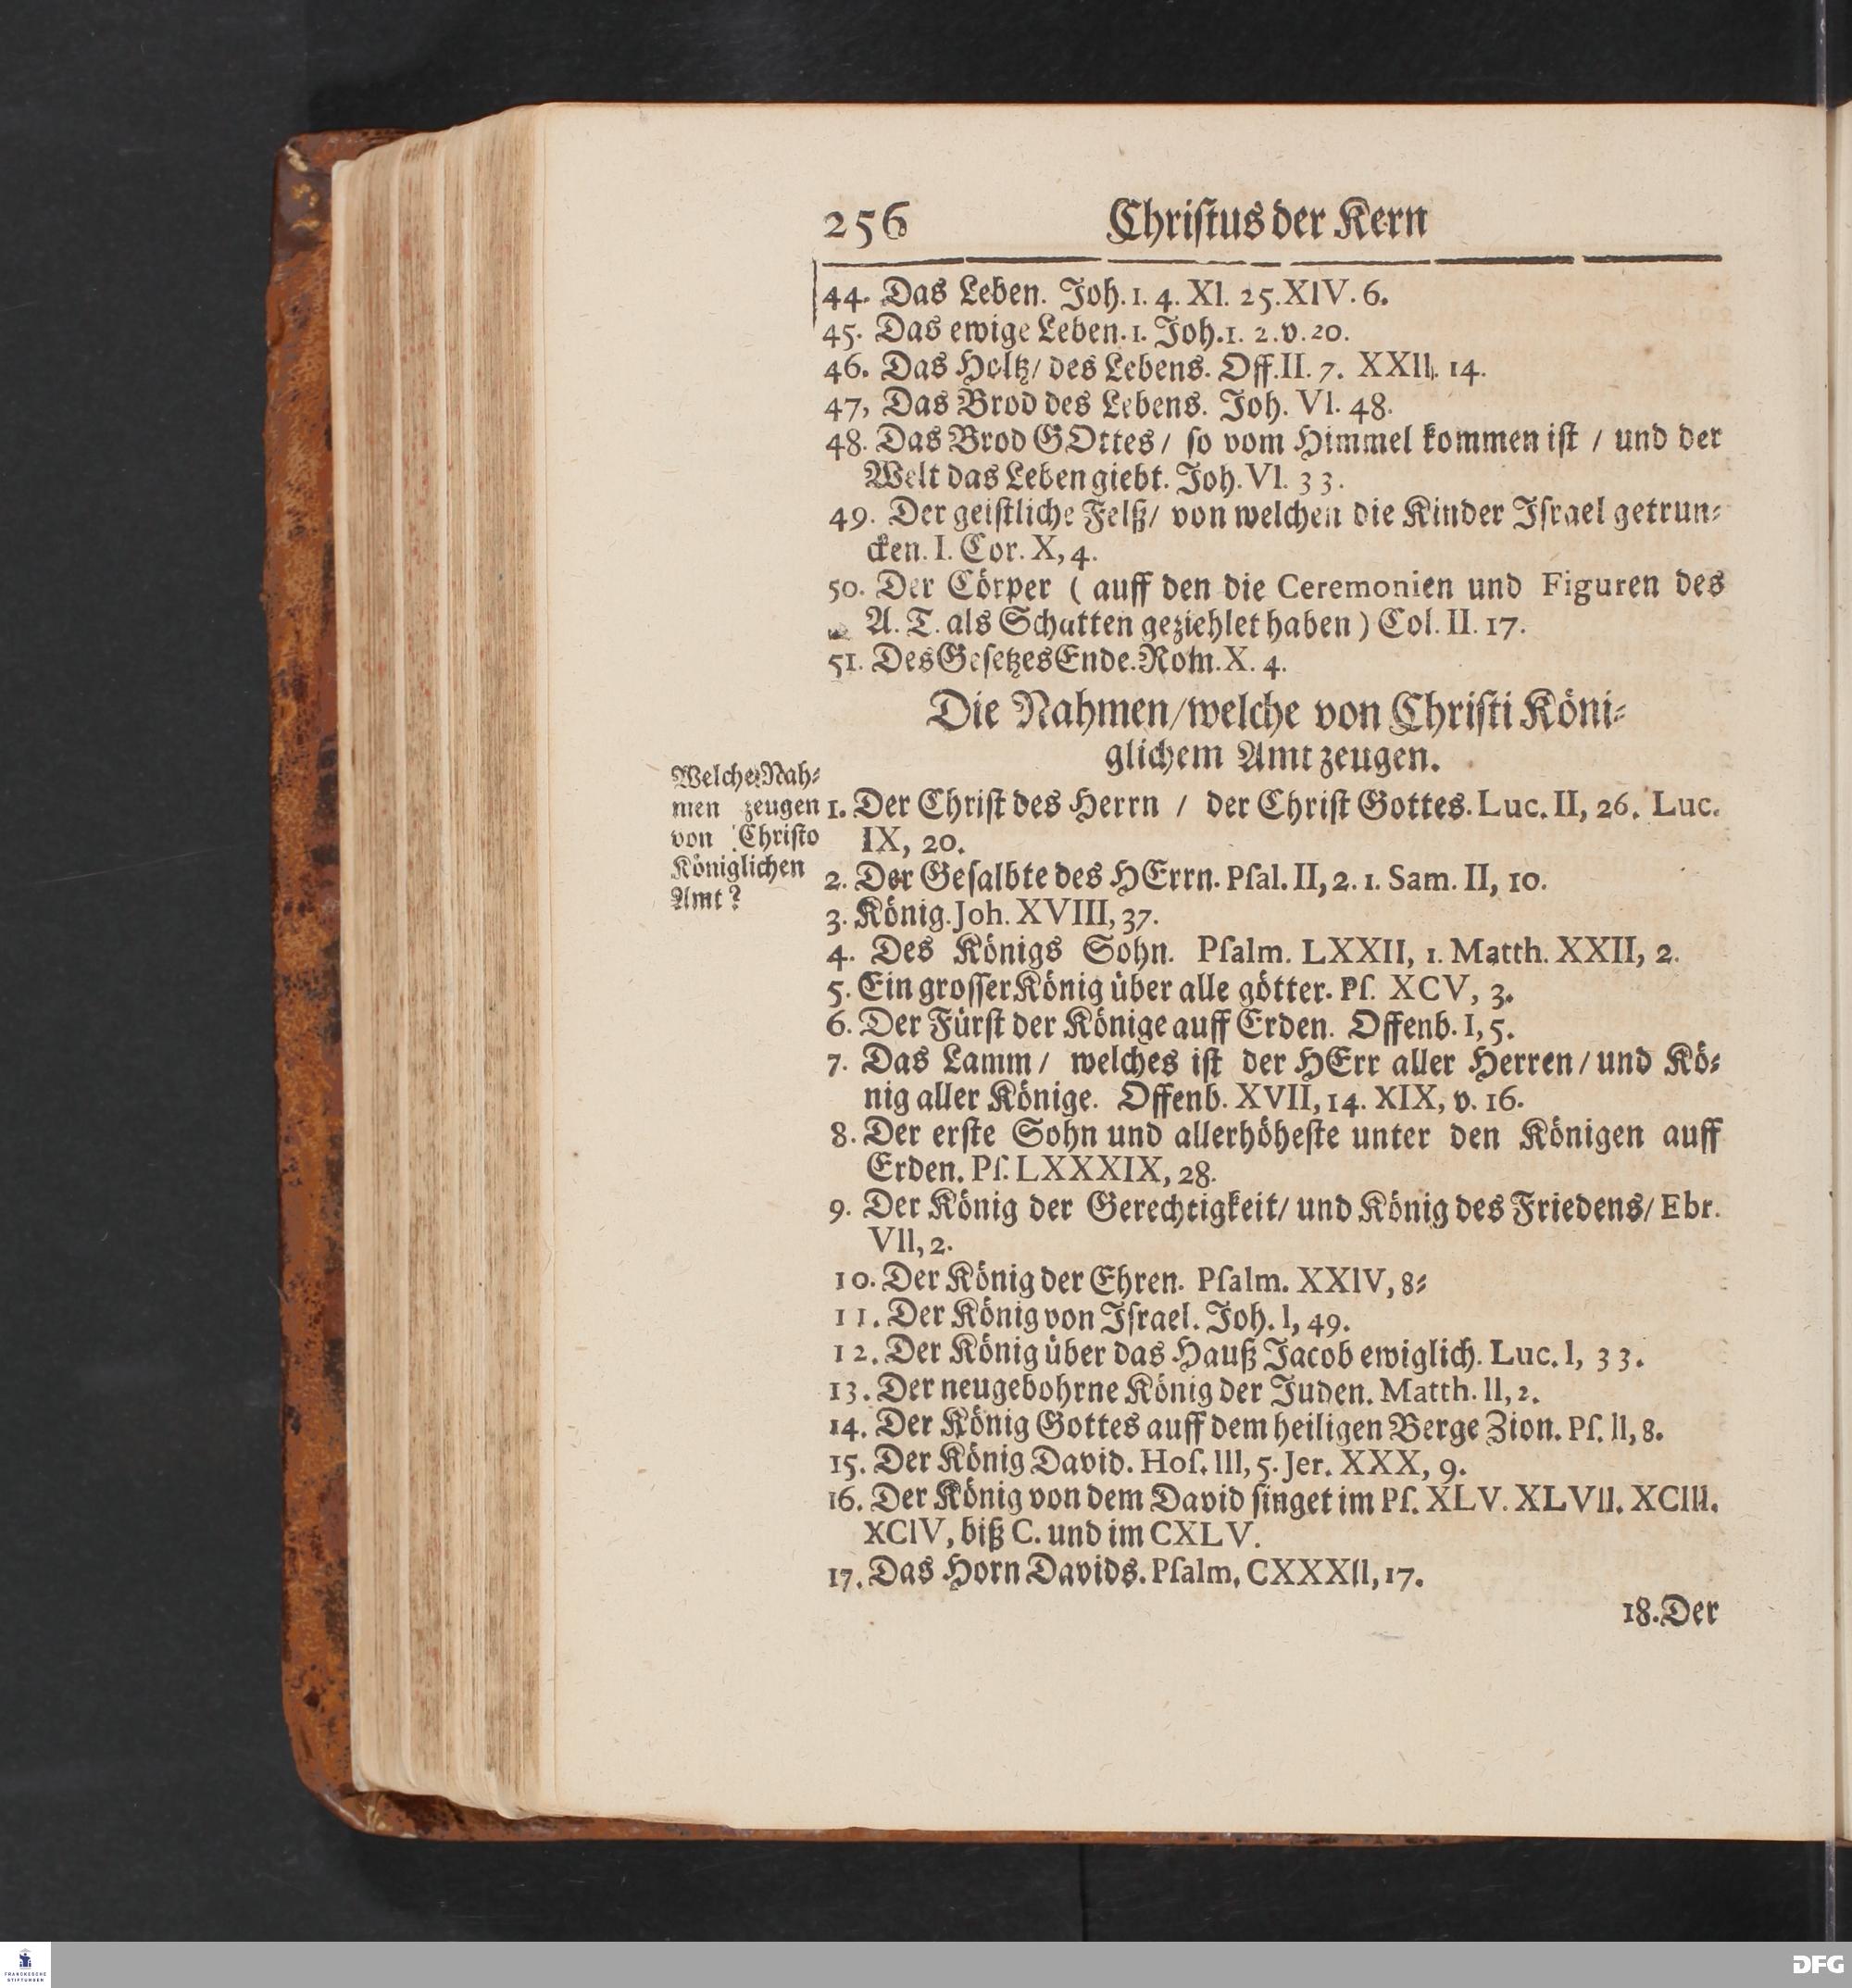 256 Chriſtus der Kern
44. Das Leben. Joh. 1. 4. XI. 25. XIV. 6.
45. Das ewige Leben. 1. Joh. 1. 2. v. 20.
46. Das Holtz/ des Lebens. Off. II. 7. XXII. 14.
47, Das Brod des Lebens. Joh. VI. 48.
48. Das Brod GOttes/ ſo vom Himmel kommen iſt / und der
Welt das Leben giebt. Joh. VI. 33.
49. Der geiſtliche Felß/ von welchen die Kinder Iſrael getrun⸗
cken. I. Cor. X, 4.
50. Der Cörper ( auff den die Ceremonien und Figuren des
A. T. als Schatten geziehlet haben ) Col. II. 17.
51. Des Geſetzes Ende. Rom. X. 4.
Die Nahmen/welche von Chriſti Köni⸗
glichem Amt zeugen.
Welche Nah⸗
men zeugen
von Chriſto
Königlichen
Amt?
1. Der Chriſt des Herrn / der Chriſt Gottes. Luc. II, 26. Luc.
IX, 20.
2. Der Geſalbte des HErrn. Pſal. II, 2. 1. Sam. II, 10.
3. König. Joh. XVIII, 37.
4. Des Königs Sohn. Pſalm. LXXII, 1. Matth. XXII, 2.
5. Ein groſſer König über alle götter. Pſ. XCV, 3.
6. Der Fürſt der Könige auff Erden. Offenb. I, 5.
7. Das Lamm/ welches iſt der HErr aller Herren/ und Kö⸗
nig aller Könige. Offenb. XVII, 14. XIX, v. 16.
8. Der erſte Sohn und allerhöheſte unter den Königen auff
Erden. Pſ. LXXXIX, 28.
9. Der König der Gerechtigkeit/ und König des Friedens/ Ebr.
VII, 2.
10. Der König der Ehren. Pſalm. XXIV, 8⸗
11. Der König von Iſrael. Joh. I, 49.
12. Der König über das Hauß Jacob ewiglich. Luc. I, 33.
13. Der neugebohrne König der Juden. Matth. II, 2.
14. Der König Gottes auff dem heiligen Berge Zion. Pſ. II, 8.
15. Der König David. Hoſ. III, 5. Jer. XXX, 9.
16. Der König von dem David ſinget im Pſ. XLV. XLVII. XCIII.
XCIV, biß C. und im CXLV.
17. Das Horn Davids. Pſalm, CXXXII, 17.
18. Der
FRANCKESCHE
STIFTUNGEN
DFG